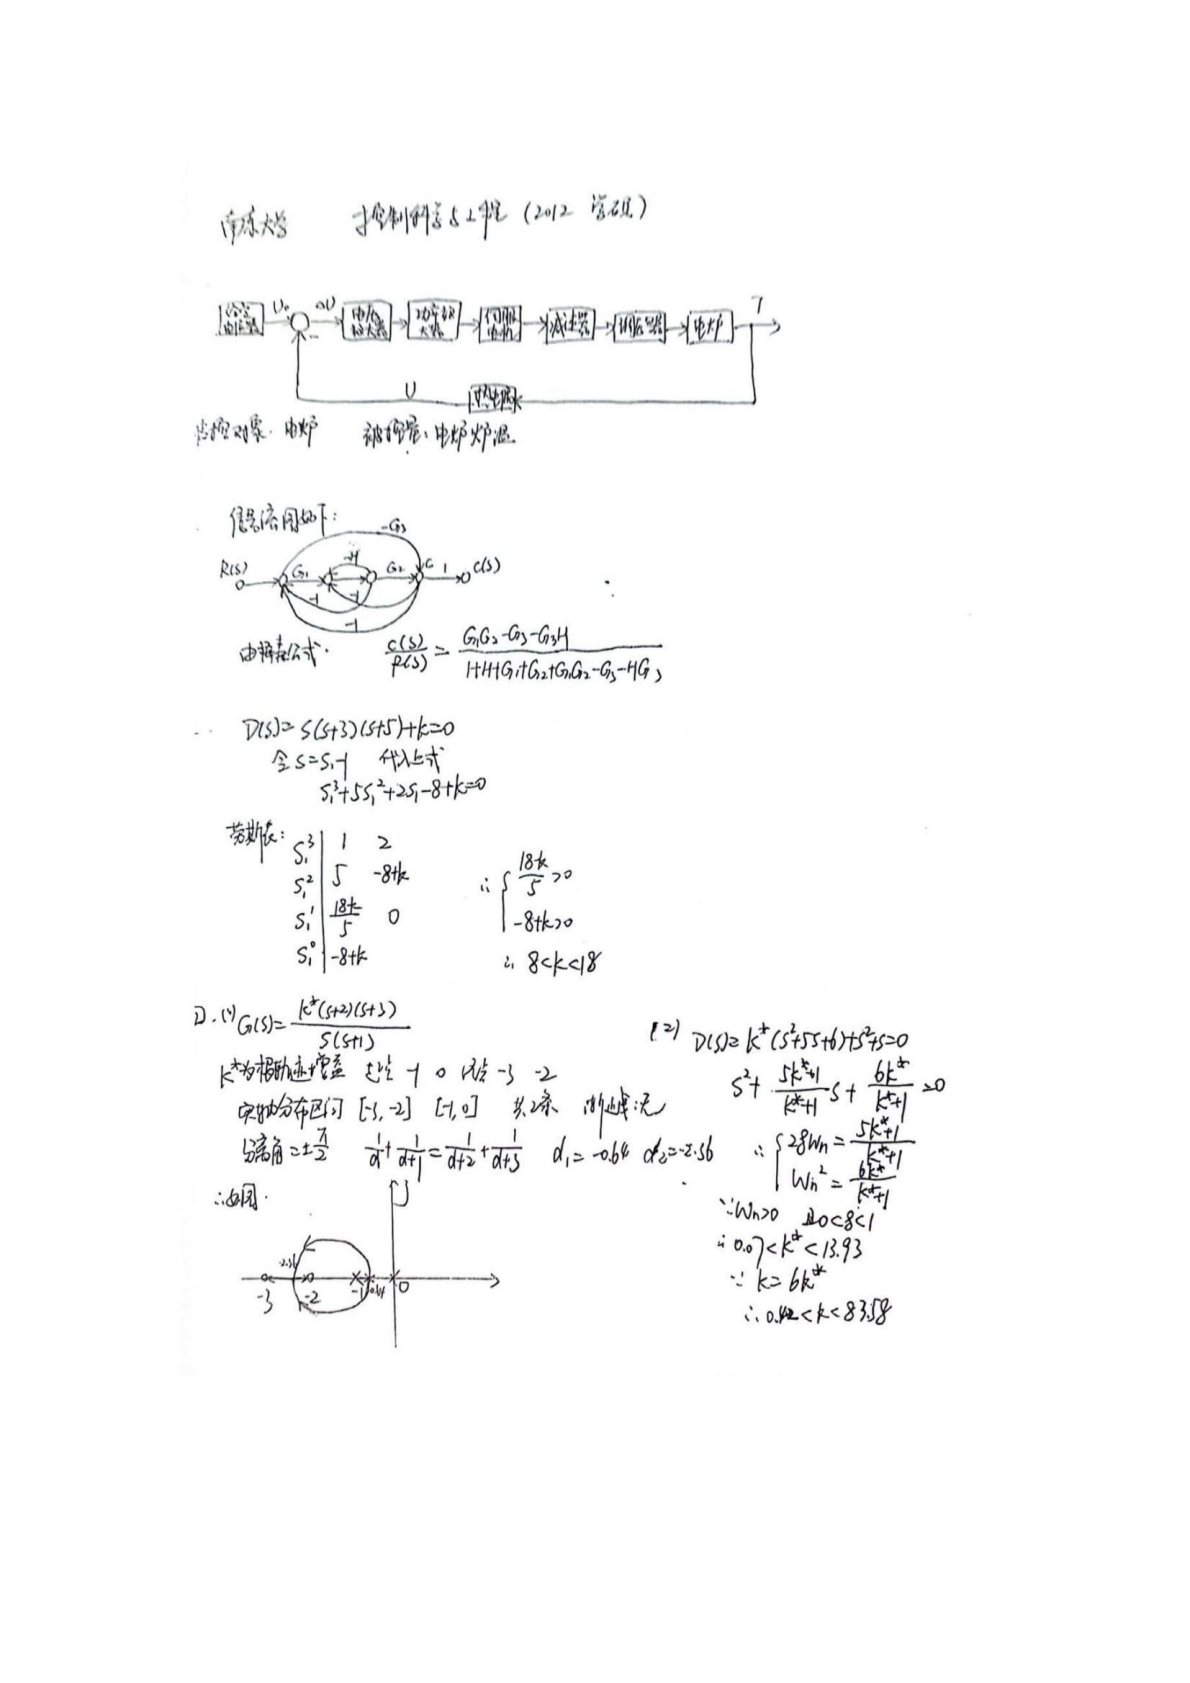 南京大学 控制科学与工程 (2012 学硕)
给定电位器 U₀ ΔU 电压放大器 功率放大器 伺服电机 减速器 调压器 电炉 T
-
U 热电偶
被控对象: 电炉 被控量: 电炉炉温
信号流图如下:
-G₃
R(s) G₁ -H G₂ C 1 C(s)
-1 -1
-1
由梅森公式. C(s)/R(s) = (G₁G₂-G₃-G₃H)/(1+H+G₁+G₂+G₁G₂-G₃-HG₃)
D(s)= s(s+3)(s+5)+k=0
令 s=s₁-1 代入上式
s₁³+5s₁²+2s₁-8+k=0
劳斯表:
s₁³ 1 2
s₁² 5 -8+k
s₁¹ (18-k)/5 0
s₁⁰ -8+k
∴ { (18-k)/5 >0
-8+k>0
∴ 8<k<18
(1) G(s)= k*(s+2)(s+3) / s(s+1)
k*为根轨迹增益 起点 -1 0 终点 -3 -2
实轴分布区间 [-3,-2] [-1,0] 共2条 渐近线:无
分离角=±π/2 1/d + 1/(d+1) = 1/(d+2) + 1/(d+3) d₁=-0.64 d₂=-2.36
∴如图.
j
-2.36
-3 -2 -1 -0.64 0
(2) D(s)= k*(s²+5s+6)+s²+s=0
s²+ (5k*+1)/(k*+1) s + 6k*/(k*+1) =0
∴ { 2ξWn = (5k*+1)/(k*+1)
Wn² = 6k*/(k*+1)
∵Wn>0 且0<ξ<1
∴ 0.07<k*<13.93
∵ k=6k*
∴ 0.42<k<83.58